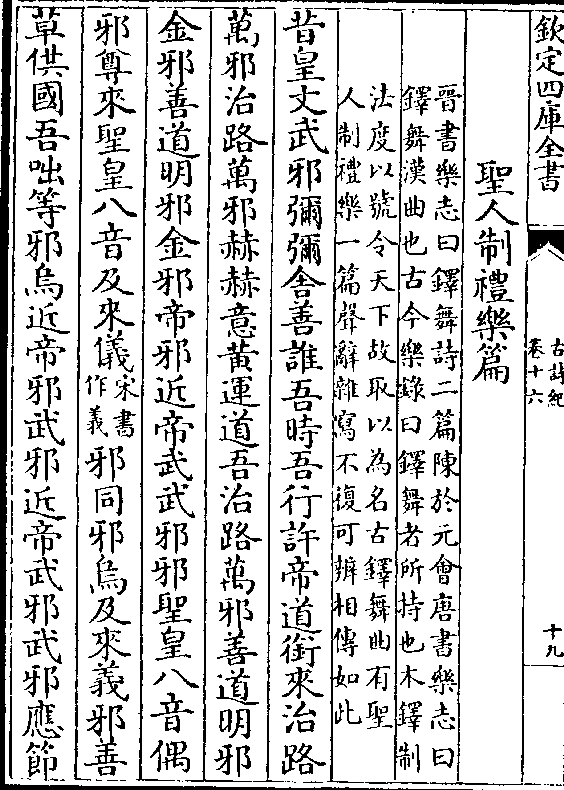 欽定四庫全書
古詩紀
卷十六
十九
聖人制禮樂篇
晉書樂志曰鐸舞詩二篇陳於元會唐書樂志曰
鐸舞漢曲也古今樂錄曰鐸舞者所持也木鐸制
法度以號令天下故取以為名古鐸舞曲有聖
人制禮樂一篇聲辭雜寫不復可辨相傳如此
昔皇文武邪彌彌舍善誰吾時吾行許帝道銜來治路
萬邪治路萬邪赫赫意黃運道吾治路萬邪善道明邪
金邪善道明邪金邪帝邪近帝武武邪邪聖皇八音偶
邪尊來聖皇八音及來儀宋書作義邪同邪烏及來義邪善
草供國吾咄等邪烏近帝邪武邪近帝武邪武邪應節